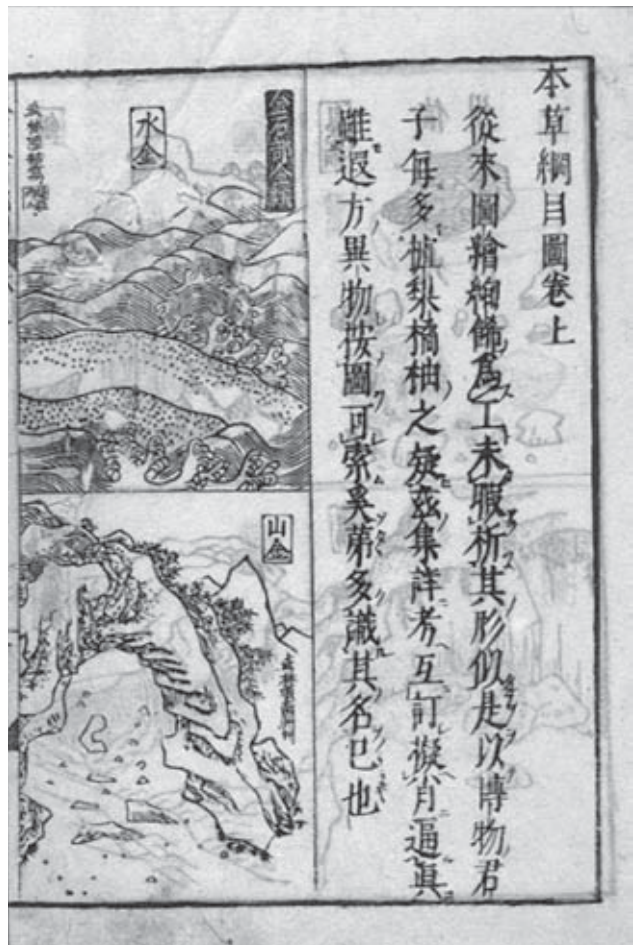 本草綱目圖卷上
從來圖繪絢飾爲工未暇析其形似是以博物君
子每多樝梨橘柚之疑茲集詳考互訂擬肖逼眞
雖遐方異物按圖可索奚第多識其名已也
金石部金類
水金
山金